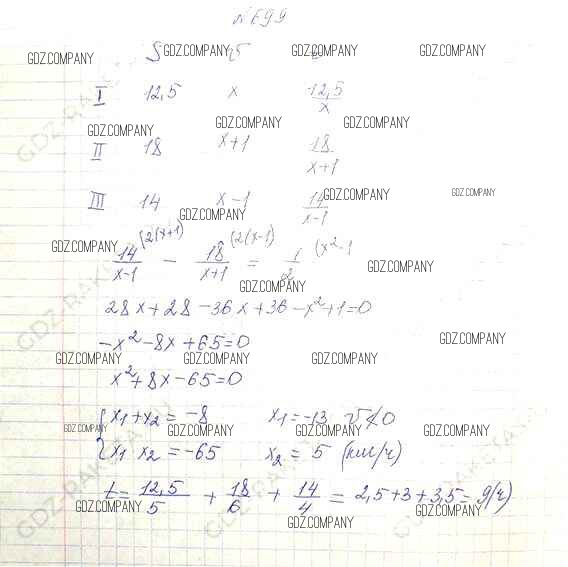 № 699
S GDZ.COMPANY V GDZ.COMPANY GDZ.COMPANY GDZ.COMPANY
I 12,5 x 12,5/x
GDZ.COMPANY GDZ.COMPANY GDZ.COMPANY
II 18 x+1 18/(x+1)
III 14 x-1 14/(x-1)
GDZ.COMPANY GDZ.COMPANY GDZ.COMPANY
14/(x-1) (2(x+1) - 18/(x+1) (2(x-1) = 1/2 (x²-1
GDZ.COMPANY GDZ.COMPANY GDZ.COMPANY
28x+28-36x+36-x²+1=0
-x²-8x+65=0 GDZ.COMPANY
GDZ.COMPANY GDZ.COMPANY GDZ.COMPANY
x²+8x-65=0
{x1+x2=-8 x1=-13
GDZ.COMPANY GDZ.COMPANY GDZ.COMPANY GDZ.COMPANY
x1 x2=-65 x2=5 (км/ч)
t=12,5/5+18/6+14/4=2,5+3+3,5=9(ч)
GDZ.COMPANY GDZ.COMPANY GDZ.COMPANY